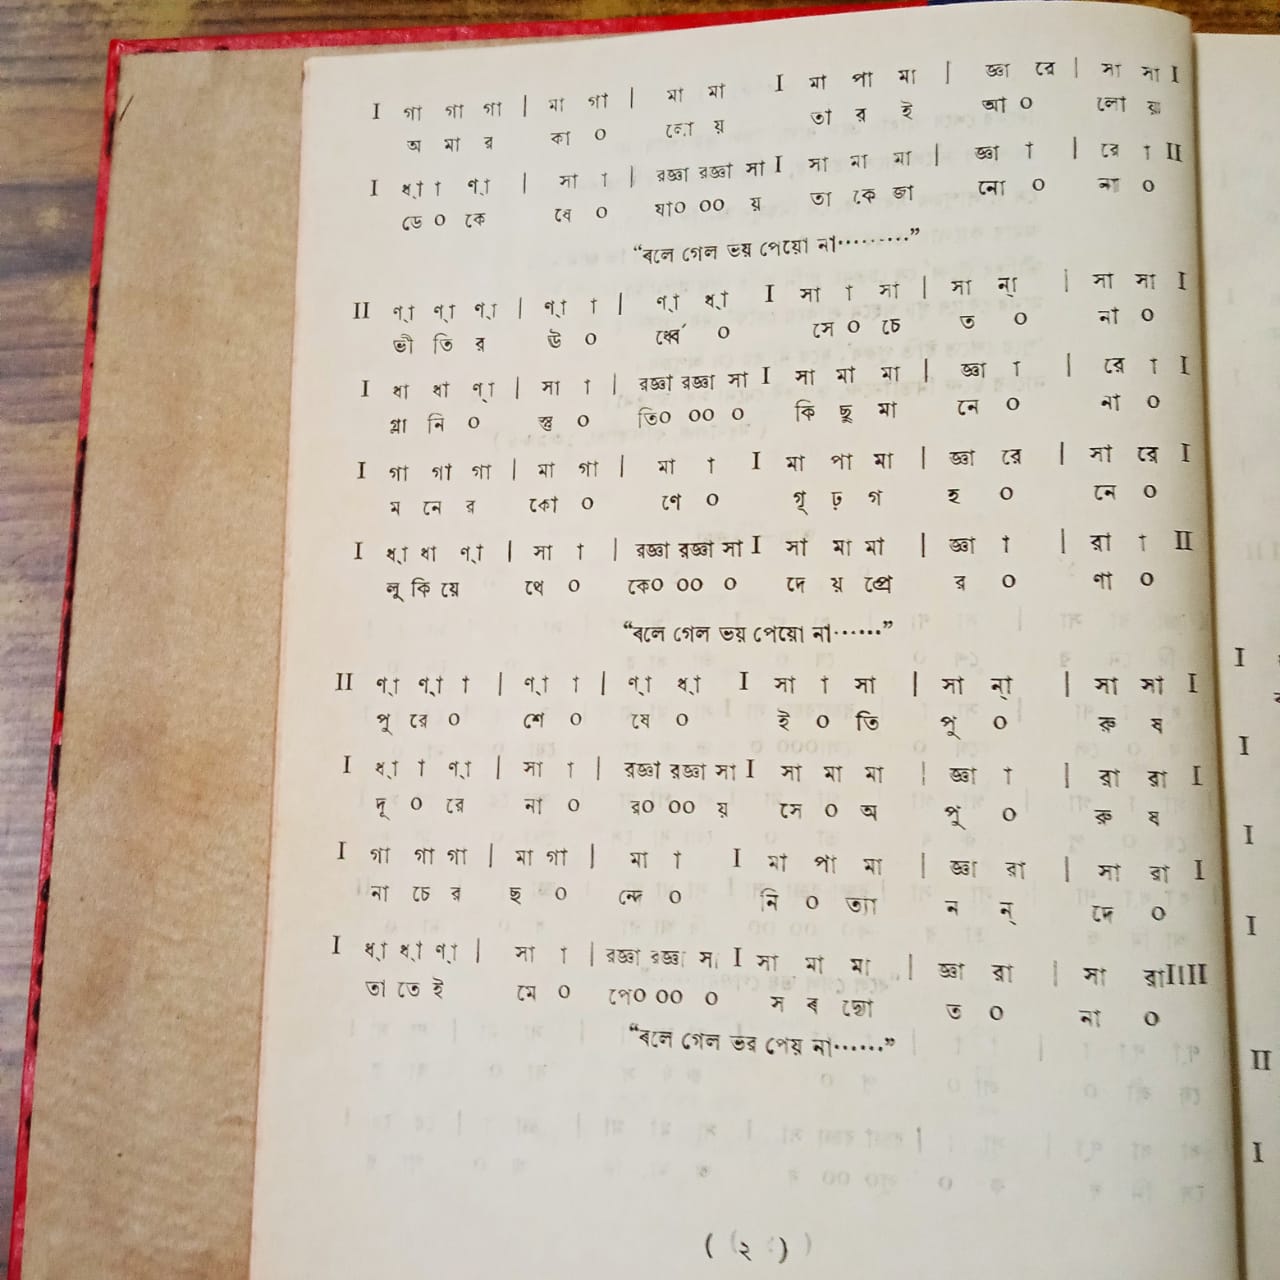 I গা গা গা | মা গা | মা মা I মা পা মা | জ্ঞা রে | সা সা I
অ মা র কা ০ লো য় তা র ই আ ০ লো য়
I ধ্া া ণ্া | সা া | রজ্ঞা রজ্ঞা সা I সা মা মা | জ্ঞা া | রে া II
ডে ০ কে যে ০ যা০ ০০ য় তা কে জা নো ০ না ০
“বলে গেল ভয় পেয়ো না·········”
II ণ্া ণ্া ণ্া | ণ্া া | ণ্া ধ্া I সা া সা | সা ন্া | সা সা I
ভী তি র ঊ ০ র্ধ্বে ০ সে ০ চে ত ০ না ০
I ধা ধা ণ্া | সা া | রজ্ঞা রজ্ঞা সা I সা মা মা | জ্ঞা া | রে া I
গ্লা নি ০ স্তু ০ তি০ ০০ ০ কি ছু মা নে ০ না ০
I গা গা গা | মা গা | মা া I মা পা মা | জ্ঞা রে | সা রে I
ম নে র কো ০ ণে ০ গূ ঢ় গ হ ০ নে ০
I ধ্া ধা ণ্া | সা া | রজ্ঞা রজ্ঞা সা I সা মা মা | জ্ঞা া | রা া II
লু কি য়ে থে ০ কে০ ০০ ০ দে য় প্রে র ০ ণা ০
“বলে গেল ভয় পেয়ো না······”
II ণ্া ণ্া া | ণ্া া | ণ্া ধ্া I সা া সা | সা ন্া | সা সা I
পু রে ০ শে ০ ষে ০ ই ০ তি পু ০ রু ষ
I ধ্া া ণ্া | সা া | রজ্ঞা রজ্ঞা সা I সা মা মা | জ্ঞা া | রা রা I
দূ ০ রে না ০ র০ ০০ য় সে ০ অ পু ০ রু ষ
I গা গা গা | মা গা | মা া I মা পা মা | জ্ঞা রা | সা রা I
না চে র ছ ০ ন্দে ০ নি ০ ত্যা ন ন্ দে ০
I ধ্া ধ্া ণ্া | সা া | রজ্ঞা রজ্ঞা সা I সা মা মা | জ্ঞা রা | সা রা IIII
তা তে ই মে ০ পে০ ০০ ০ স ব দ্যো ত ০ না ০
“বলে গেল ভর পেয় না······”
( ২ )